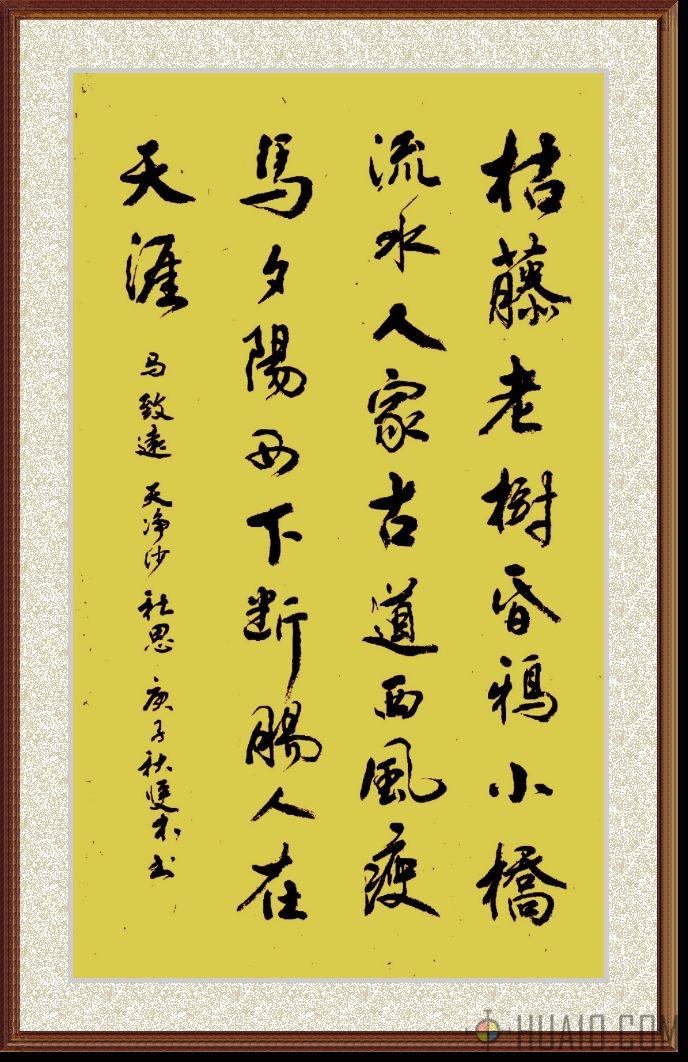 枯藤老樹昏鴉小橋
流水人家古道西風瘦
馬夕陽西下断腸人在
天涯
马致遠 天净沙 秋思 庚子秋 木书
HUAIO.COM